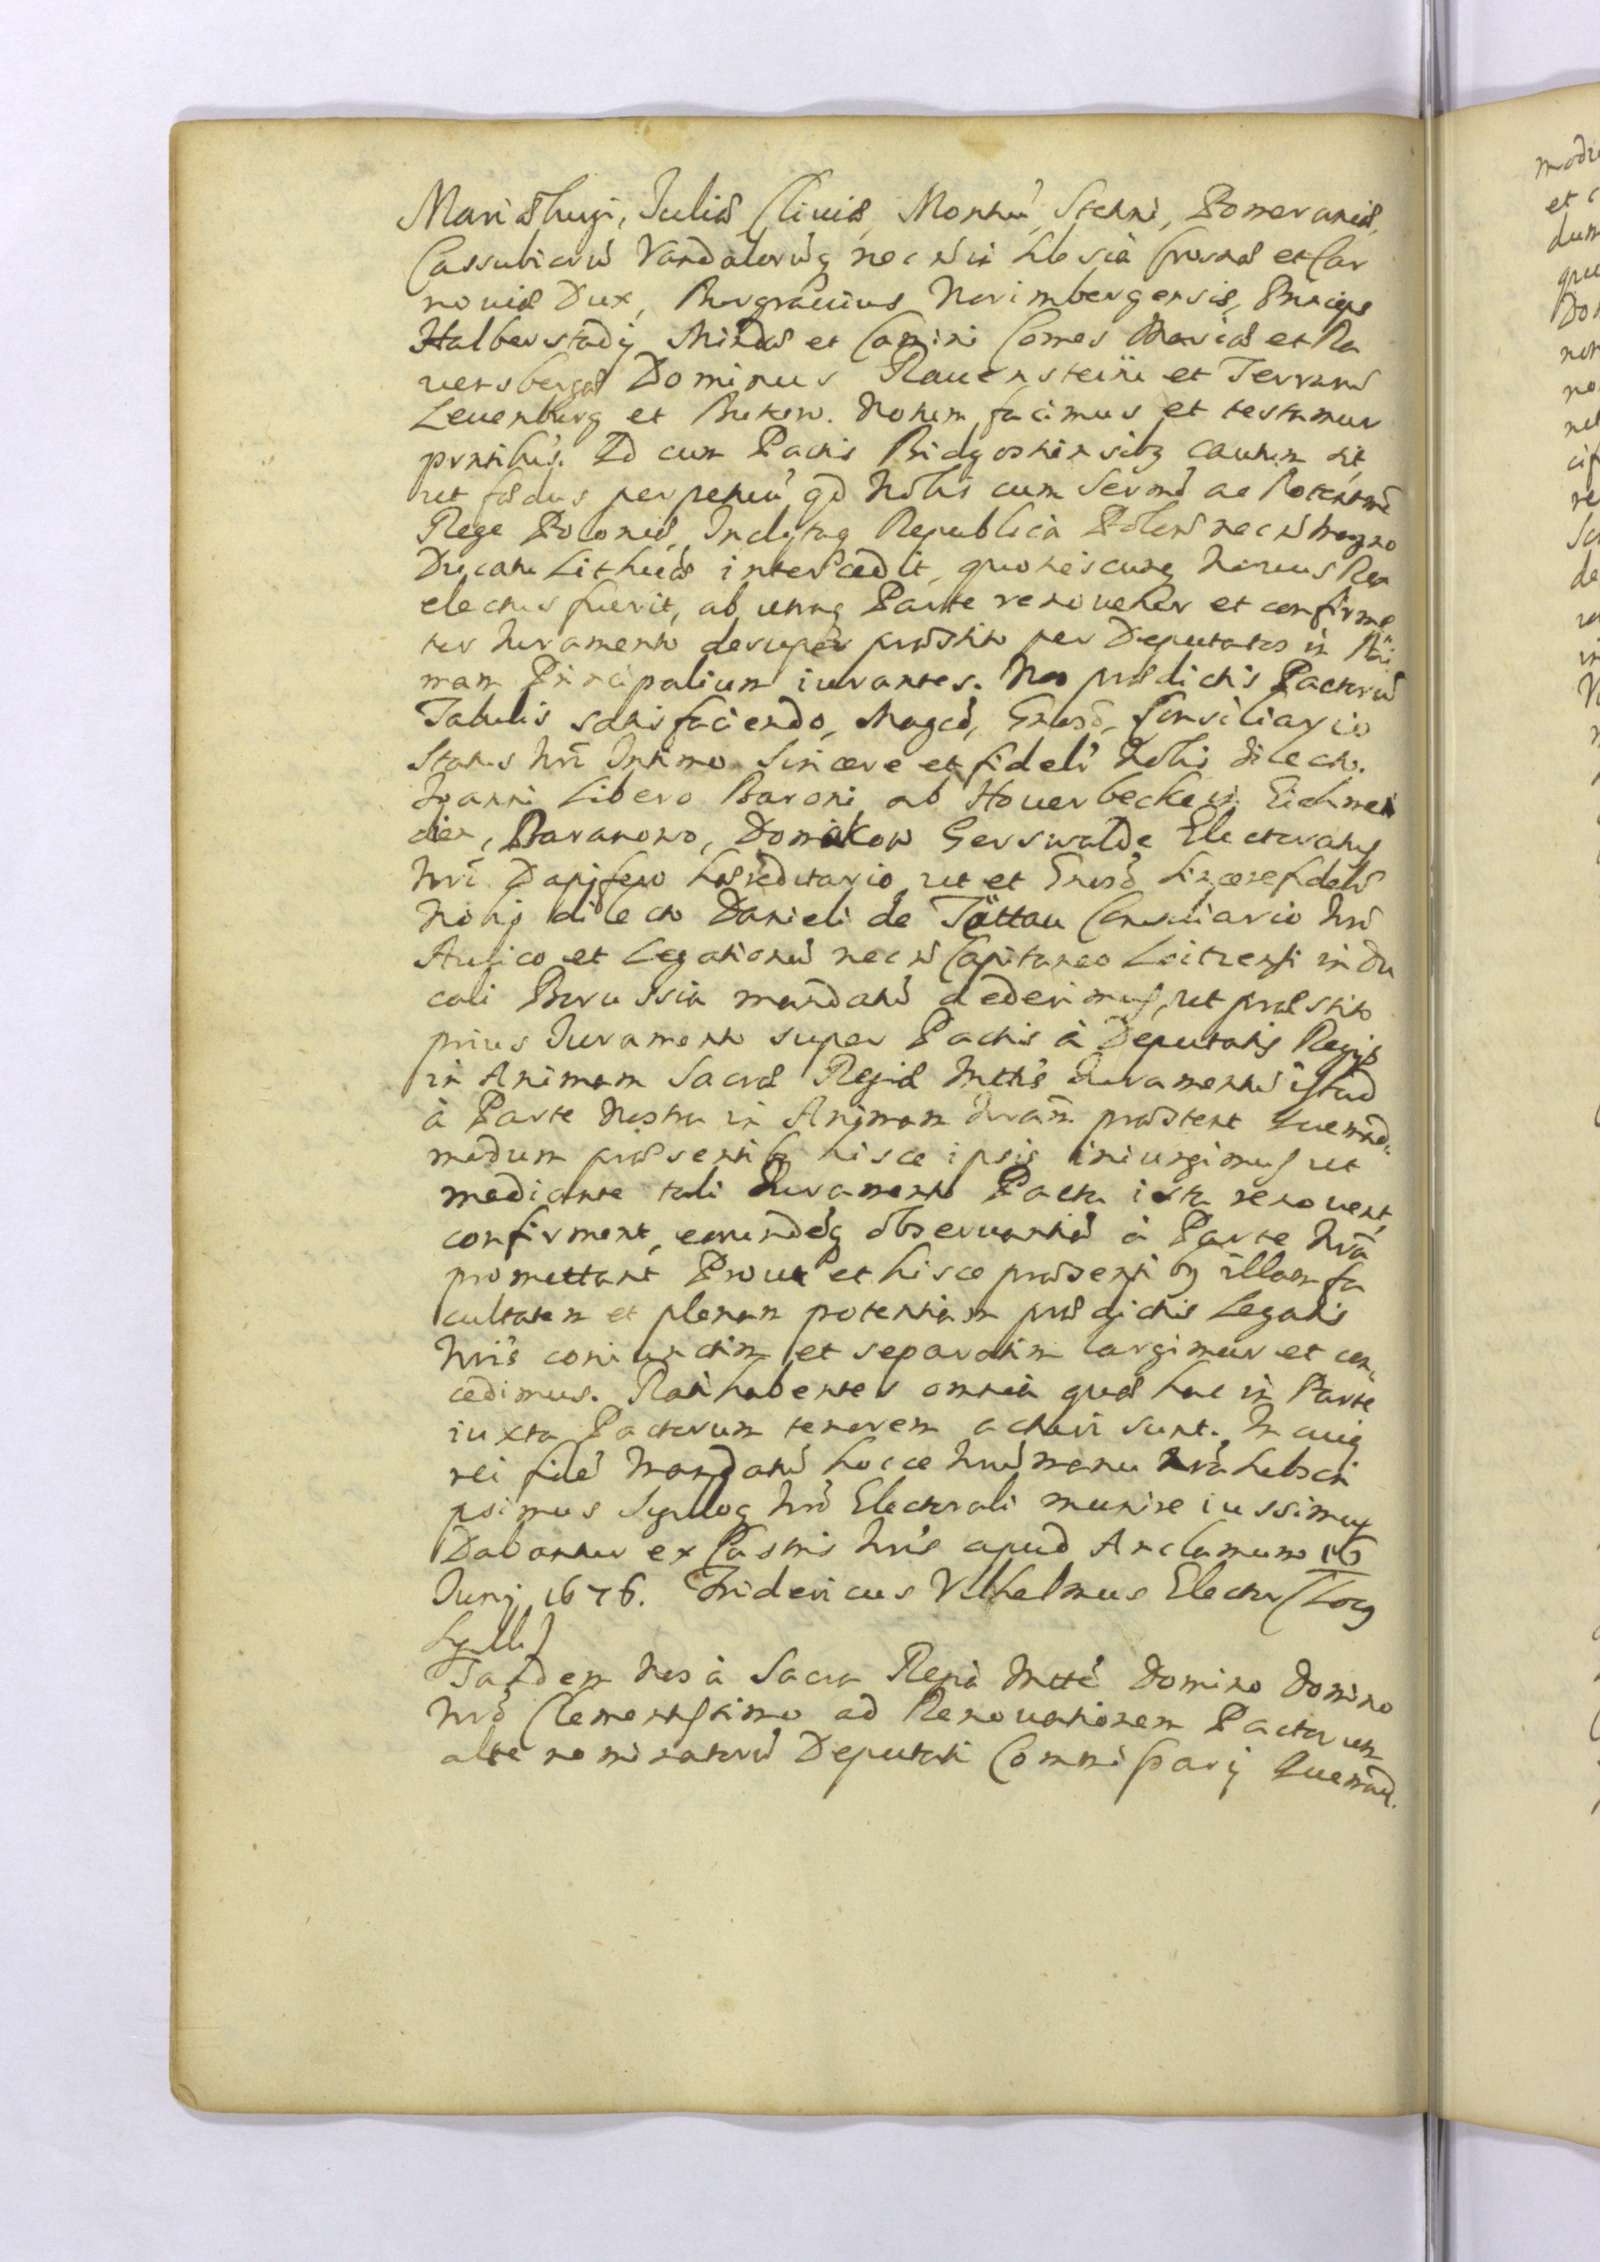 Mariæburgi, Juliæ Cliviæ, Montiũ, Stetini, Pomeraniæ,
Cassubiorũ Vandalorũq necnõ in Silesia Crosnæ et Car
noviæ Dux, Burgravius Norimbergensis, Princeps
Halberstadij Mindæ et Camini Comes Marciæ et Ra
uensbergæ Dominus Rauensteini et Terrarũ
Leuenburg et Butow. Notum facimus et testamur
prntibus. Id cum Pactis Bidgostiensibq cautum sit,
ut fædus perpetuũ qd Nobis cum Sermõ ac Potentmõ
Rege Poloniæ, Inclytaq Republica Polona necnõ Magno
Ducatu Lithuæ intercedit, quotiescunq novus Rex
electus fuerit, ab utraq Parte renouetur et confirme
tur Juramento desuper præstito per Deputatos in Ani
mam Principalium iurantes. Nos prædictis Pactorũ
Tabulis satisfaciendo, Magco, Genoso, Consiliario
Status Nri Intimo Sincere et fideli Nobis dilecto.
Joanni Libero Baroni ab Houerbecke in Eichme
dien, Baranowo, Domikow Gerswalde Electoratus
Nri Dapifero hæreditario ut et Genoso sincere fideli
Nobis dilecto Danieli de Tættau Consiliario Nro
Aulico et Legationũ necnõ Capitaneo Loitzensi in Du
cali Borussia mandatũ dederimus, ut præstito
prius Juramento super Pactis à Deputatis Regijs
in Animam Sacræ Regiæ Mttis Juramentũ istud
à Parte Nostra in Animam Nram præstent Quemad-
modum præsentibq hisce ipsis iniungimus ut
mediante tali Juramento Pacta ista renouent,
confirment, eorundẽq observantiã à Parte Nra
promettant Prout et hisce præsentibq illam fa
cultatem et plenam potentiam prædictis Legatis
Nris coniunctim et separatim largimur et con-
cedimus. Ratihabentes omnia quæ hac in Parte
iuxta Pactorum tenorem acturi sunt. In cuiq
rei fidẽ Mandatũ hocce Nrũ manu Nra subscri
psimus Sigilloq Nro Electorali munire iussimus
Dabantur ex Castris Nris apud Anclamum 16
Junij 1676. Fridericus Vilhelmus Elector (Locq
Sigilli)
Tandem Nos à Sacra Regia Mtte Domino Domino
Nro Clementissimo ad Renouationem Pactorum
alte nominatorũ Deputati Commissarij Quemad.